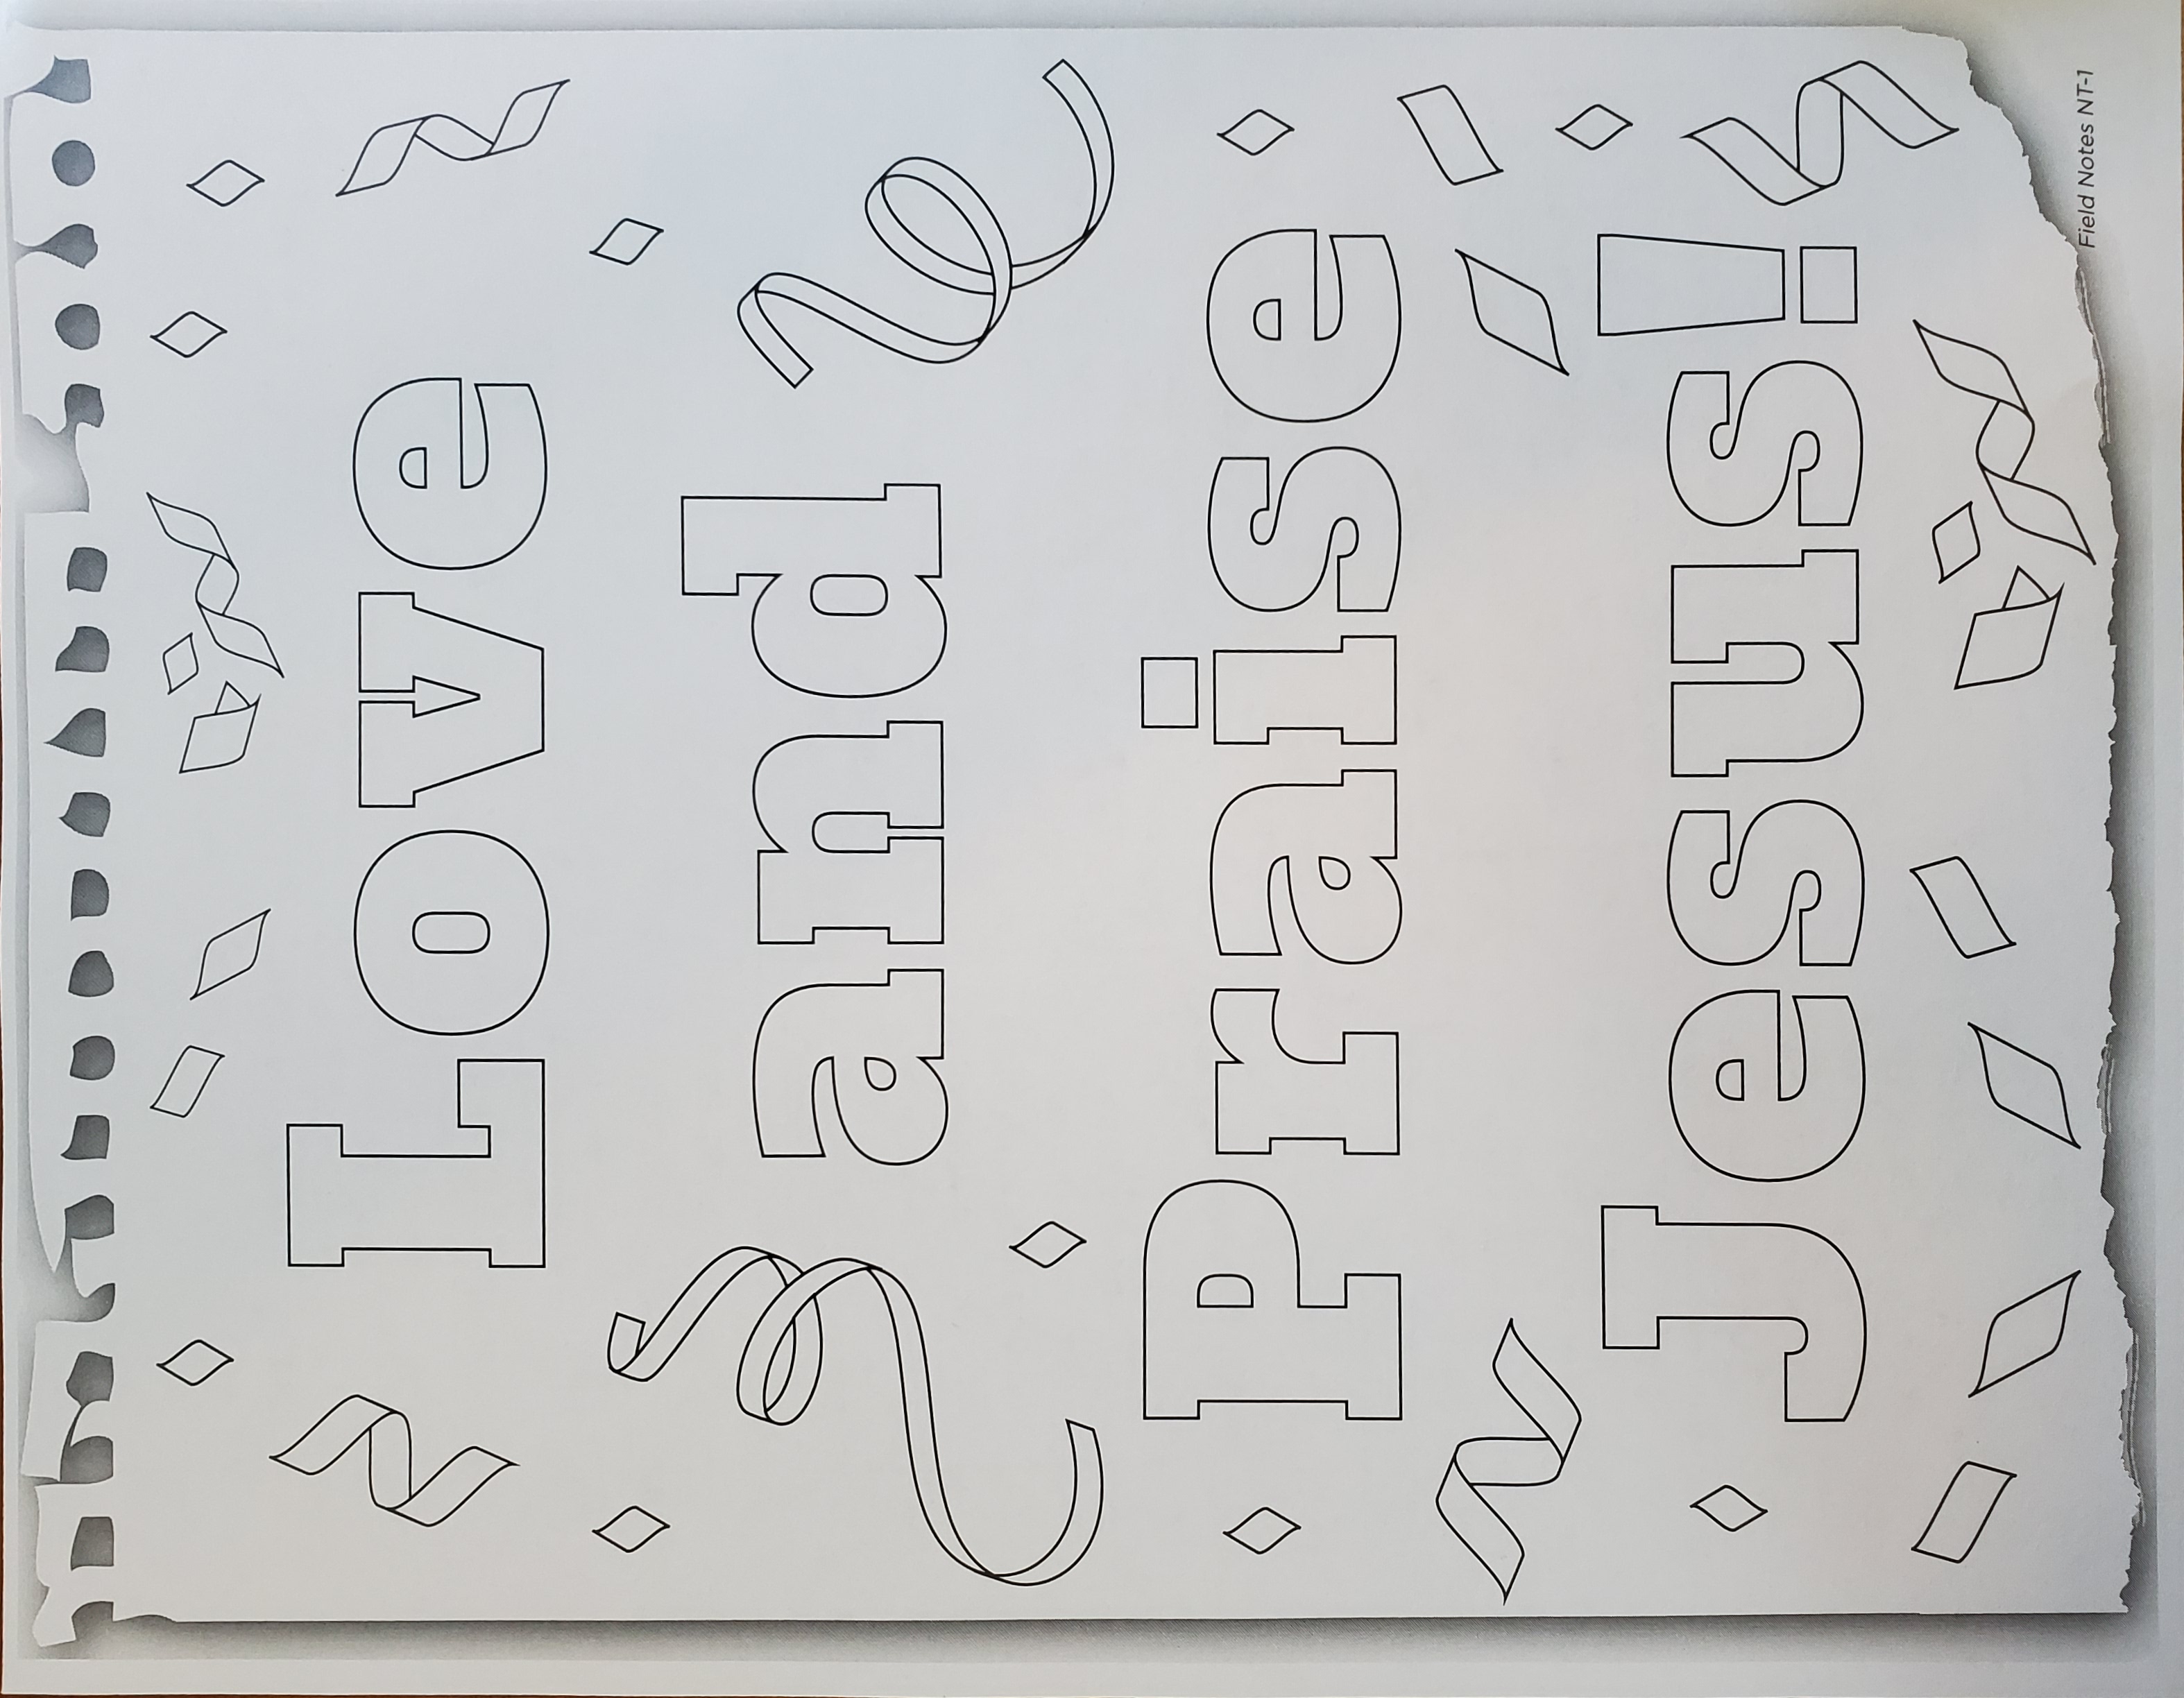 Love
and
Praise
Jesus!
Field Notes NT-1